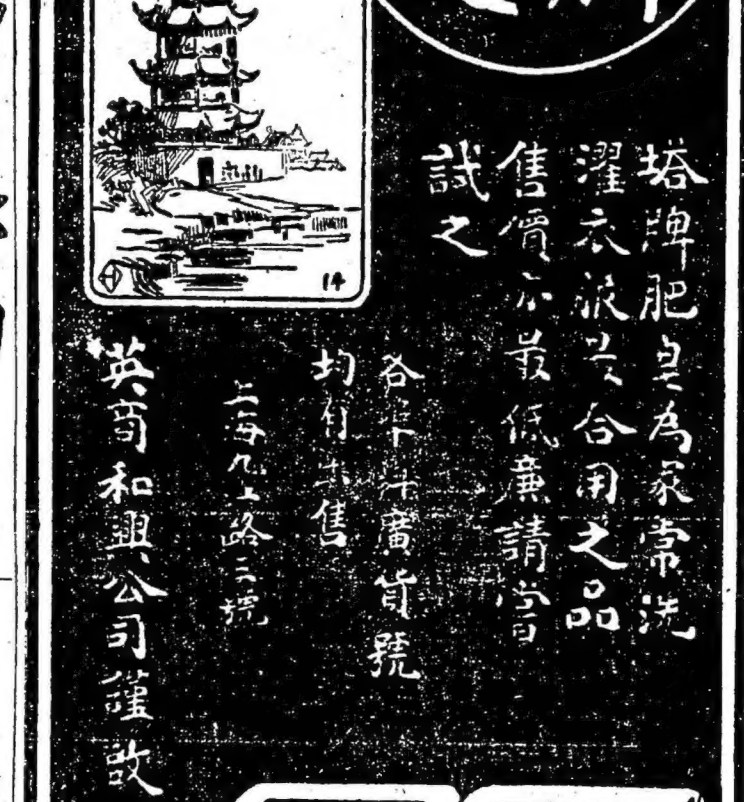 塔牌肥皂為家常洗
濯衣服最合用之品
售價亦最低廉請嘗
試之
各洋廣貨號
均有出售
上海九江路二號
英商和興公司謹啟
14